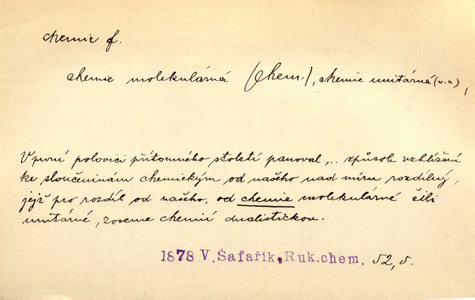 chemie f.
chemie molekulárná (Chem.), chemie unitárná (v. a.),
V první polovici přítomného století panoval,.. způsob vzhlížení
ke sloučeninám chemickým od našeho nad míru rozdílný,
jejž pro rozdíl od našeho, od chemie molekulárné čili
unitárné, zoveme chemií dualistickou.
1878 V. Šafařík, Ruk. chem. 52, 5.